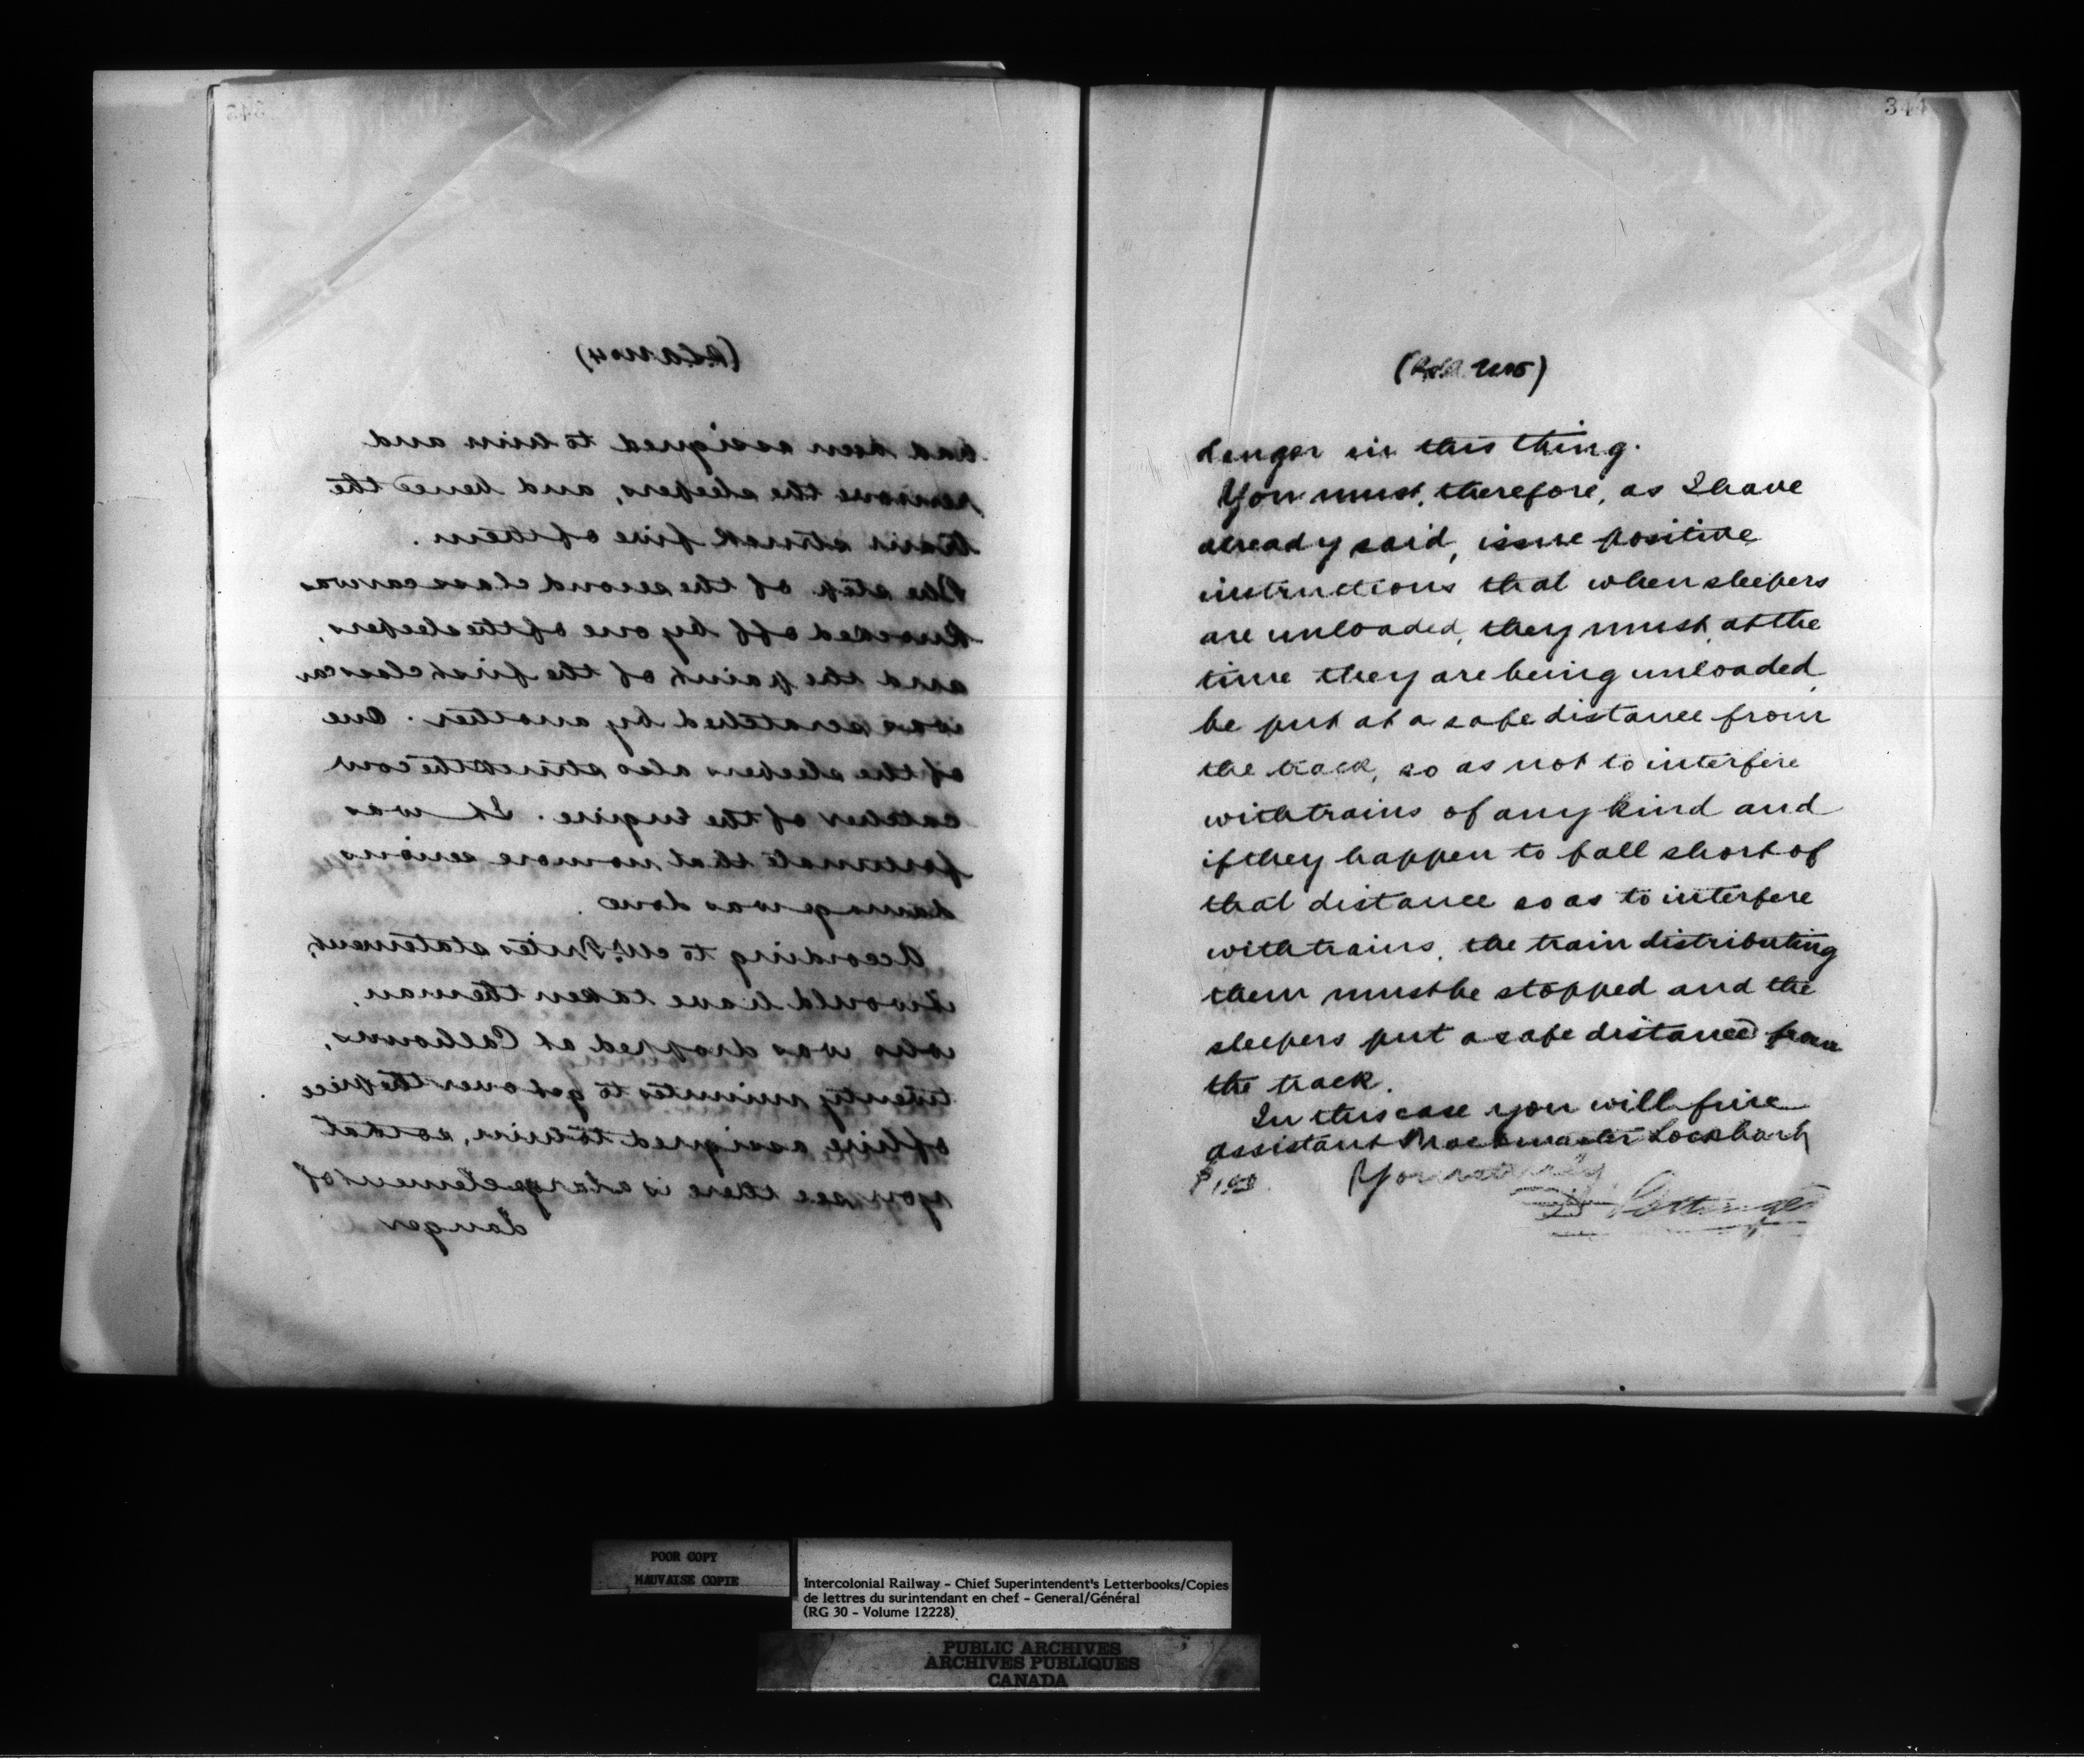 343
(P.S.A. No 4)
had been assigned to him and
remove the sleepers, and hence the
train struck five of them.
The step of the second class car was
knocked off by one of the sleepers,
and the paint of the first class car
was scratched by another. One
of the sleepers also struck the cow
catcher of the Engine. It was
fortunate that no more serious
damage was done.
According to Mr. statement,
it would have taken the man,
who was dropped at Calhouns,
twenty minutes to get over the piece
of line assigned to him, so that
you see there is a large element of
danger
344
danger in this thing.
You must, therefore, as I have
already said, issue positive
instructions that when sleepers
are unloaded, they must, at the
time they are being unloaded,
be put at a safe distance from
the track, so as not to interfere
with trains of any kind and
if they happen to fall short of
that distance so as to interfere
with trains, the train distributing
them must be stopped and the
sleepers put a safe distance from
the track.
In this case you will fine
assistant Trackmaster Lockhart
Yours truly
D Pottinger
POOR COPY
MAUVAISE COPIE
Intercolonial Railway - Chief Superintendent's Letterbooks/Copies
de lettres du surintendant en chef - General/Général
(RG 30 - Volume 12228)
PUBLIC ARCHIVES
ARCHIVES PUBLIQUES
CANADA